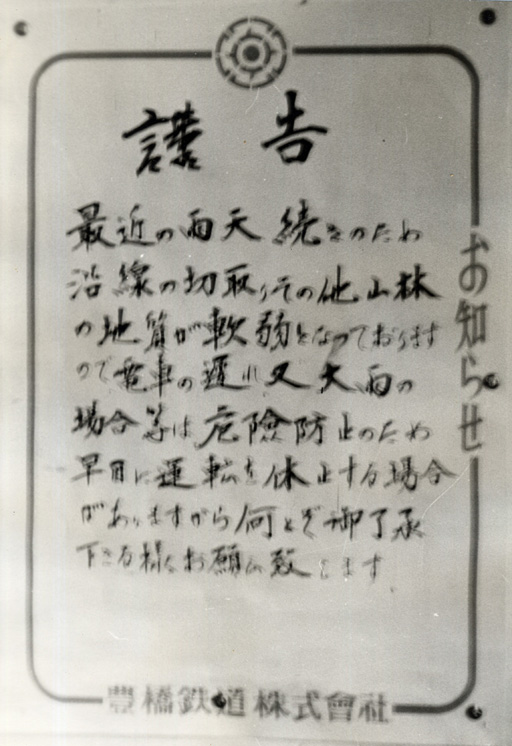 謹告
最近の雨天続きのため
沿線の切取りその他山林
の地質が軟弱となっております
ので電車の遅れ又大雨の
場合等は危険防止のため
早目に運転を休止する場合
がありますから何とぞ御了承
下さる様お願い致します
お知らせ
豊橋鉄道株式會社